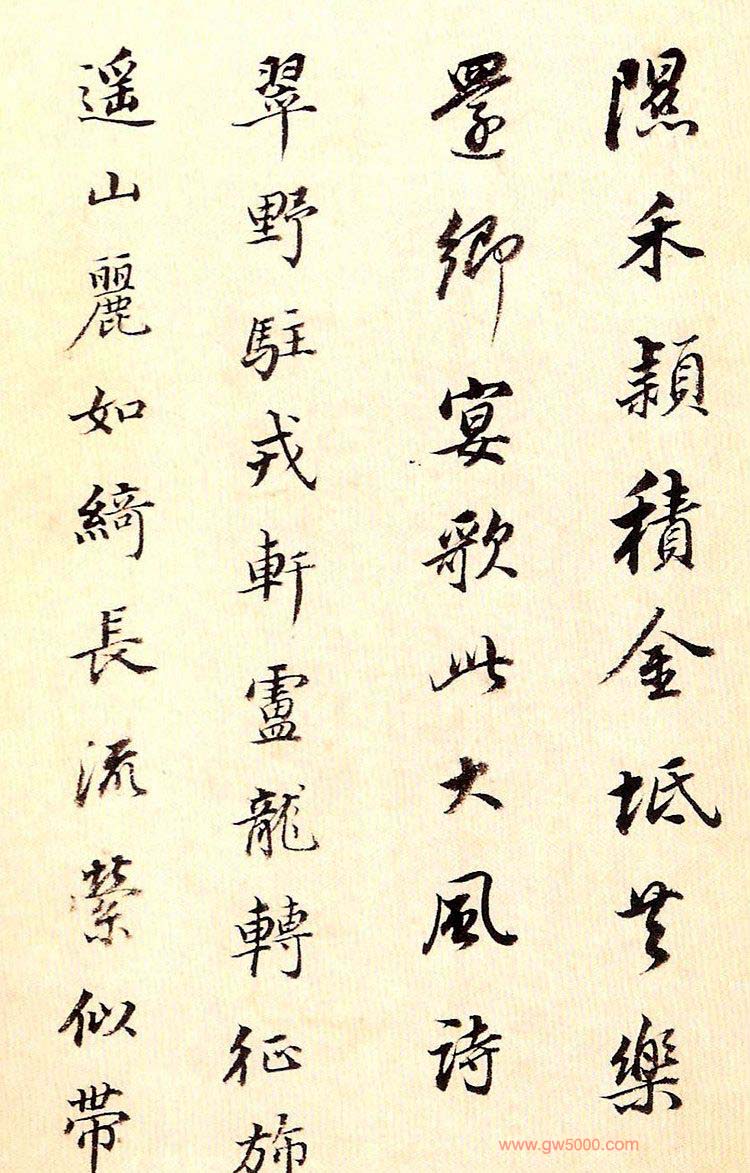 隰禾穎積金坻共樂
還鄉宴歌此大風詩
翠野駐戎軒盧龍轉征旆
遥山麗如綺長流縈似帶
www.gw5000.com